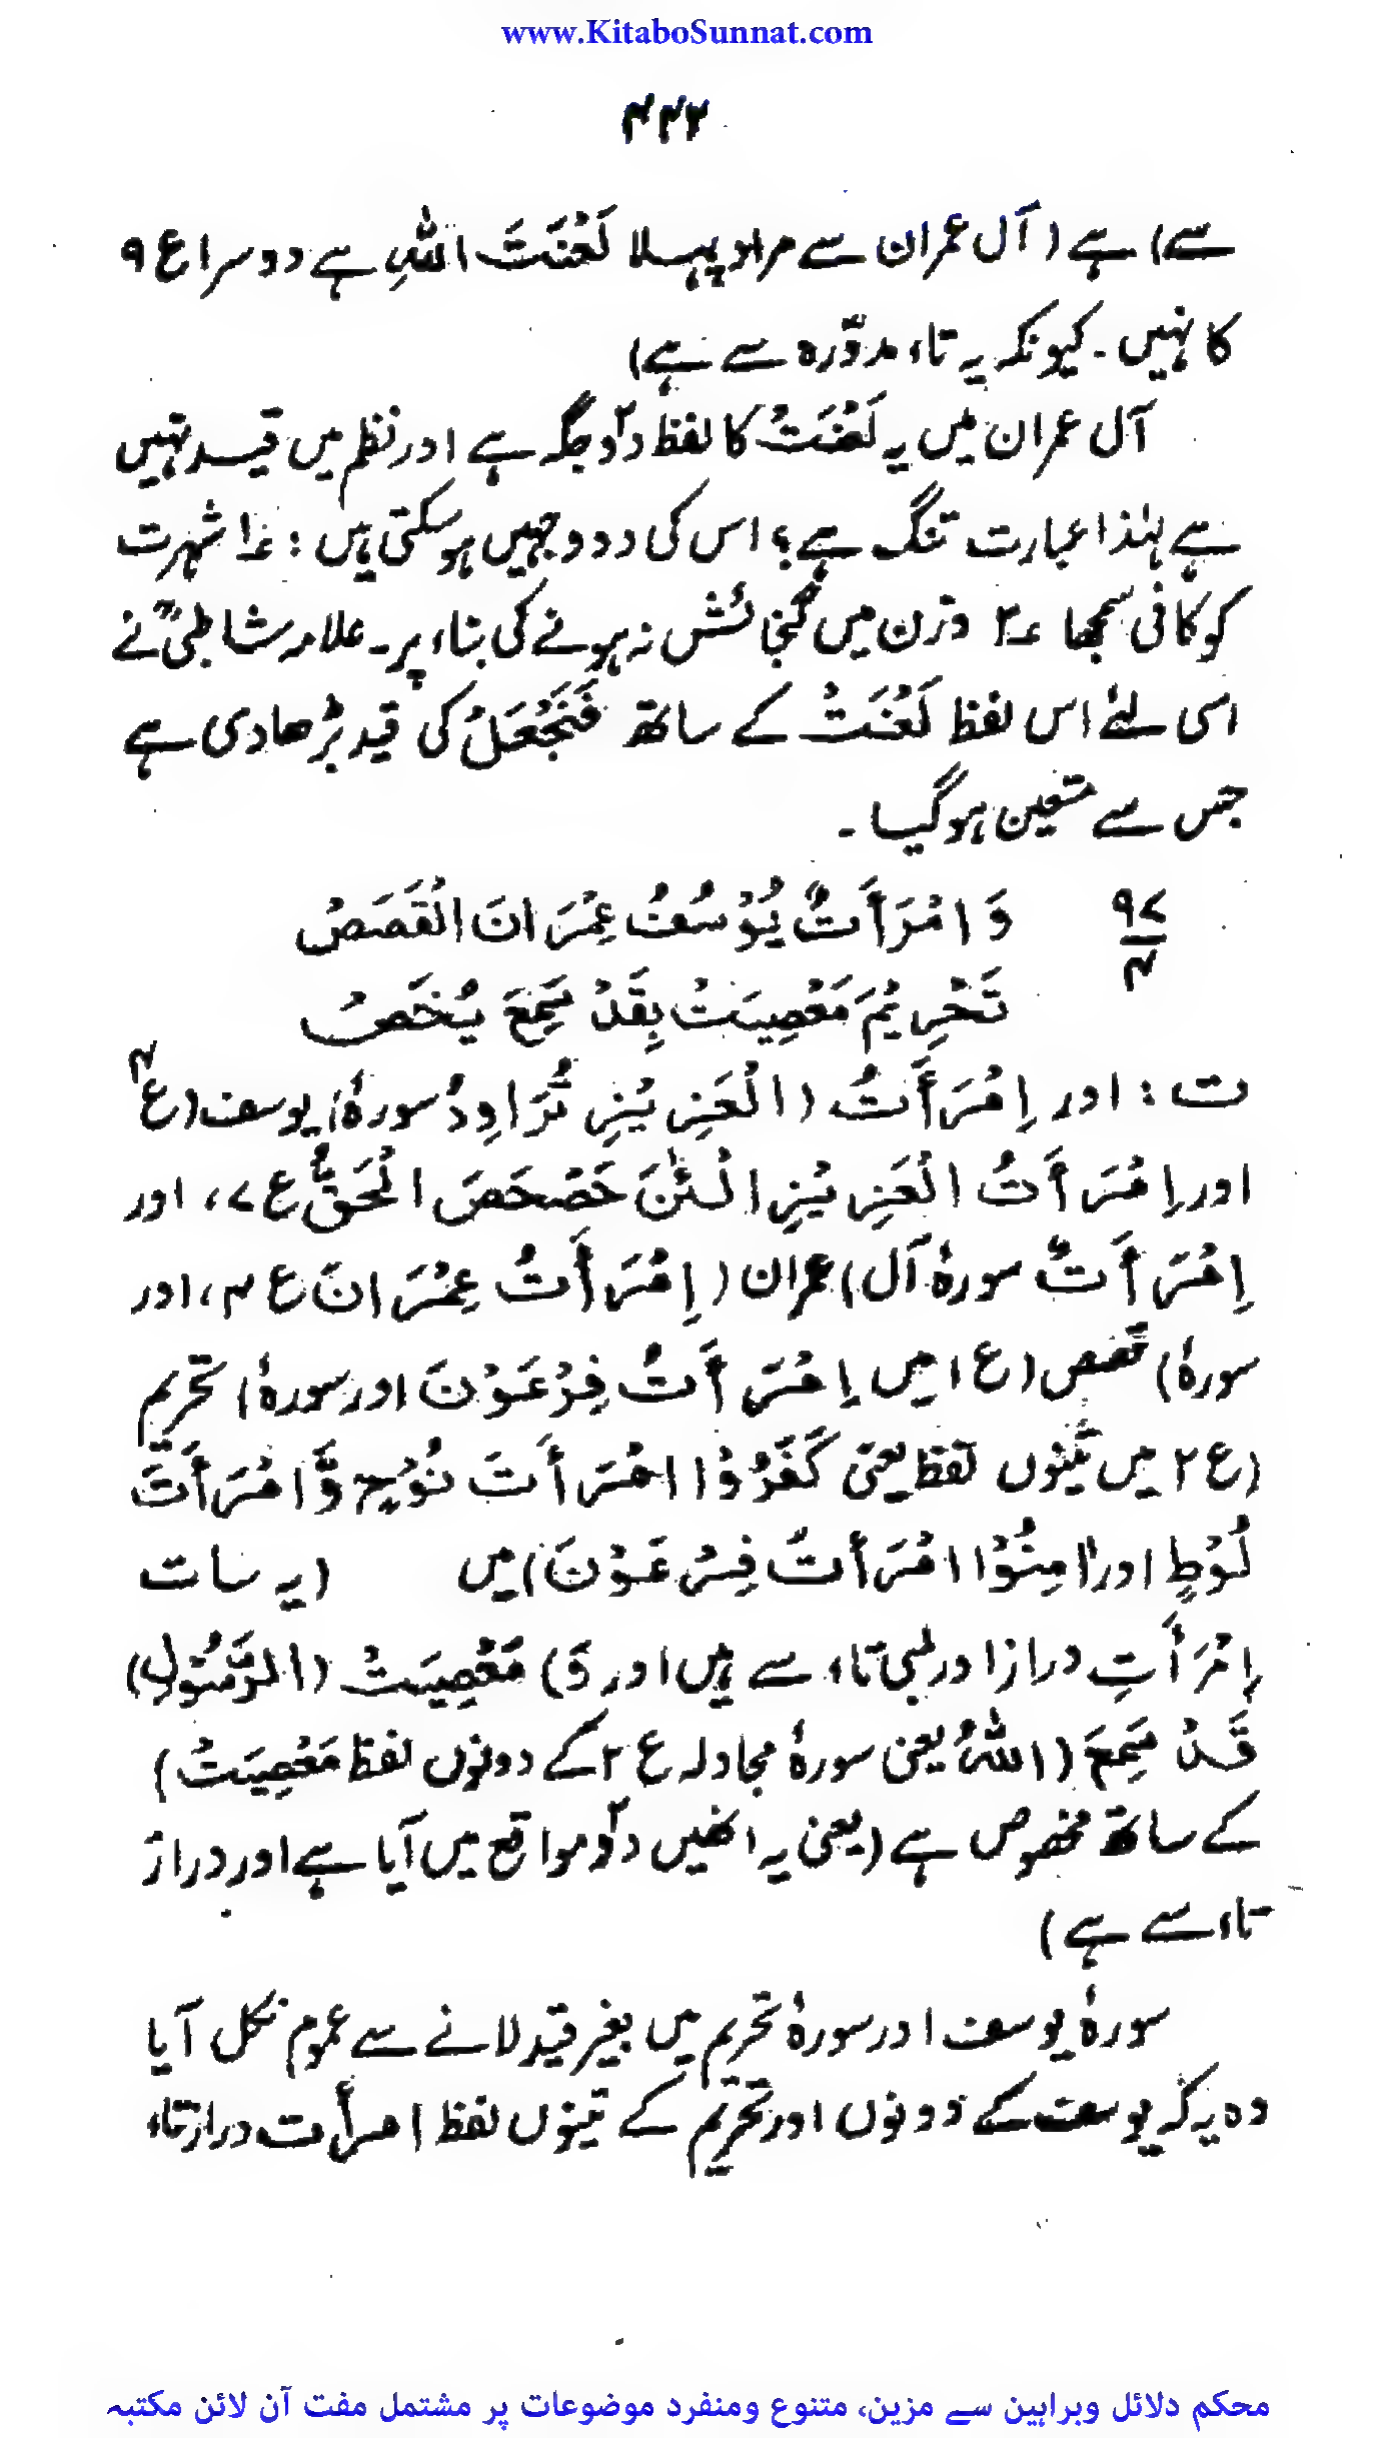 www.KitaboSunnat.com
۴۴۲
سے) ہے (آل عمران سے مراد پہلا لَعْنَتَ اللهِ ہے دوسرا ع ۹
کا نہیں ۔ کیونکہ یہ تاء مدوّرہ سے ہے)
آل عمران میں یہ لَعْنَتْ کا لفظ دو جگہ ہے اور نظم میں قید نہیں
ہے لہٰذا عبارت تنگ ہے؛ اس کی دو وجہیں ہوسکتی ہیں : ۱ شہرت
کو کافی سمجھا ۲ وزن میں گنجائش نہ ہونے کی بناء پر۔ علامہ شاطبیؒ نے
اسی لئے اس لفظ لَعْنَتْ کے ساتھ فَنَجْعَلْ کی قید بڑھادی ہے
جس سے متعین ہوگیا ۔
۹۷/۴ وَامْرَأَتٌ يُوْسُفَ عِمْرَانَ الْقَصَصْ
تَحْرِيْمَ مَعْصِيَتْ بِقَدْ سَمِعَ يُخَصْ
ت : اور اِمْرَأَتُ (الْعَزِيْزِ تُرَاوِدُ سورۂ) یوسف (ع ۴
اور اِمْرَأَتُ الْعَزِيْزِ الْئٰنَ حَصْحَصَ الْحَقُّ ع ۷، اور
اِمْرَأَتٌ سورۂ آل) عمران (اِمْرَأَتُ عِمْرَانَ ع ۴، اور
سورۂ) قصص (ع ۱ میں اِمْرَأَتُ فِرْعَوْنَ اور سورۂ) تحریم
(ع ۲ میں تینوں لفظ یعنی كَفَرُوْا امْرَأَتَ نُوْحٍ وَّامْرَأَتَ
لُوْطٍ اور اٰمِنُوْا امْرَأَتَ فِرْعَوْنَ) میں (یہ سات
اِمْرَأَتِ دراز اور لمبی تاء سے ہیں اور وَ) مَعْصِيَتْ (الرَّسُوْلِ)
قَدْ سَمِعَ (اللهُ یعنی سورۂ مجادلہ ع ۲ کے دونوں لفظ مَعْصِيَتْ)
کے ساتھ مخصوص ہے (یعنی یہ انھیں دو مواقع میں آیا ہے اور دراز
تاء سے ہے)
سورۂ یوسف اور سورۂ تحریم میں بغیر قید لانے سے عموم نکل آیا
وہ یہ کہ یوسف کے دونوں اور تحریم کے تینوں لفظ امرأت دراز تاء
محکم دلائل وبراہین سے مزین، متنوع ومنفرد موضوعات پر مشتمل مفت آن لائن مکتبہ